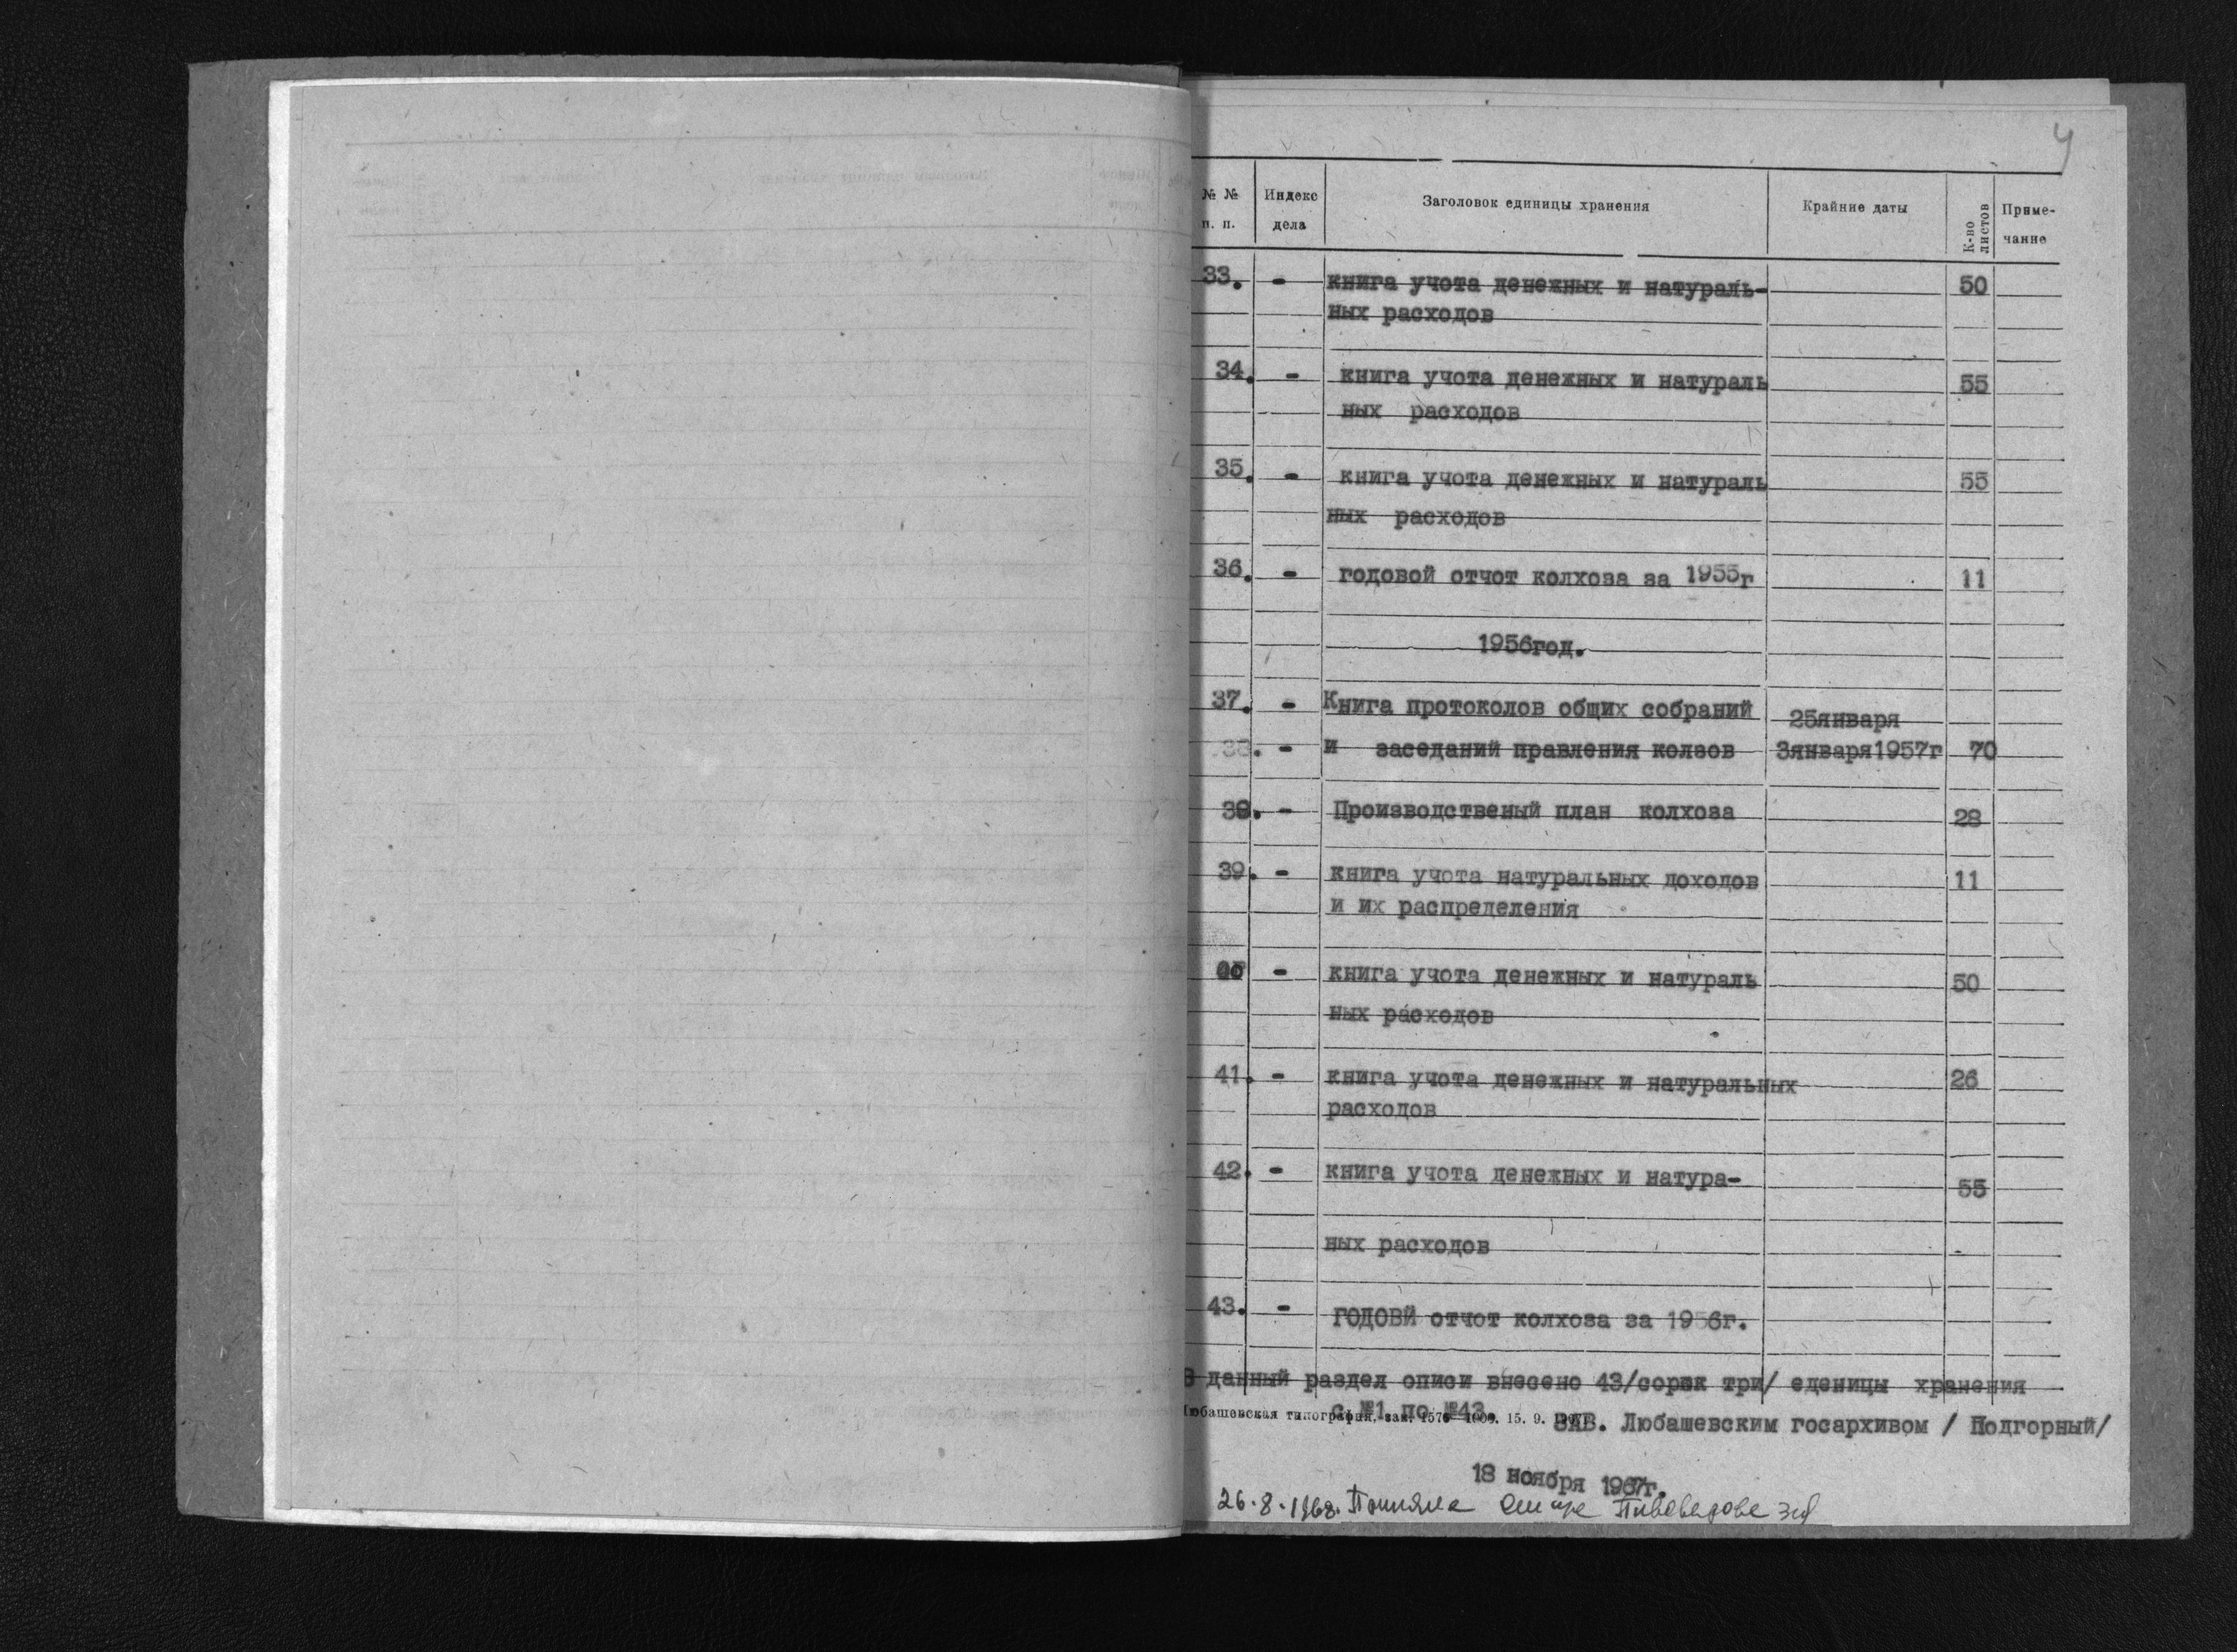 4
№ № п. п. Индекс дела Заголовок единицы хранения Крайние даты К-во листов Приме-чание
33. - книга учота денежных и натураль- 50
ных расходов
34. - книга учота денежных и натураль 55
ных расходов
35. - книга учота денежных и натураль 55
ных расходов
36. - годовой отчот колхоза за 1955г 11
1956год.
37. - Книга протоколов общих собраний 25января
38. - и заседаний правления колзов 3января1957г 70
38. - Производственый план колхоза 28
39. - книга учота натуральных доходов 11
и их распределения
40 - книга учота денежных и натураль 50
ных расходов
41. - книга учота денежных и натуральных 26
расходов
42. - книга учота денежных и натура- 55
ных расходов
43. - ГОДОВЙ отчот колхоза за 1956г.
В данный раздел описи внесено 43/сорок три/ еденицы хранения
с №1 по №43.
Любашевская типография, зак. 1576 15. 9.
ЗАВ. Любашевским госархивом / Подгорный/
18 ноября 1967г.
26.8.1968. Приняла